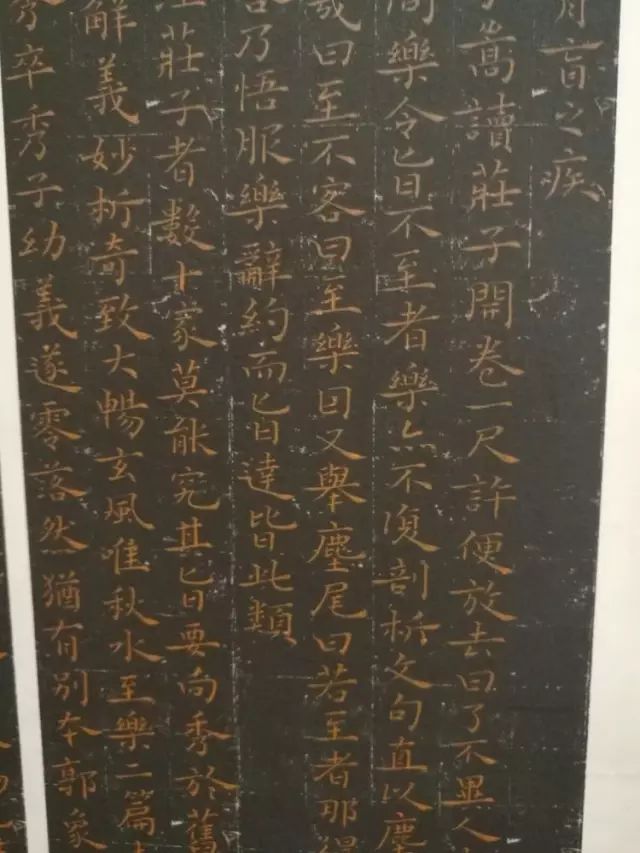 肓之疾
嵩讀莊子開卷一尺許便放去曰了不異人
樂令旨不至者樂亦不復剖析文句直以麈
曰至不客曰至樂因又舉麈尾曰若至者那得
乃悟服樂辭約而旨達皆此類
莊子者數十家莫能究其旨要向秀於舊
解義妙析奇致大暢玄風唯秋水至樂二篇
卒秀子幼義遂零落然猶有別本郭象